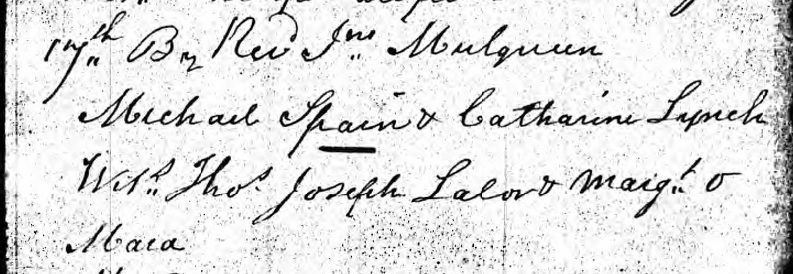 17th By Rev Jno Mulqueen
Michael Spain & Catharine Lynch
Wits Thos Joseph Lalor & Margt O
Mara